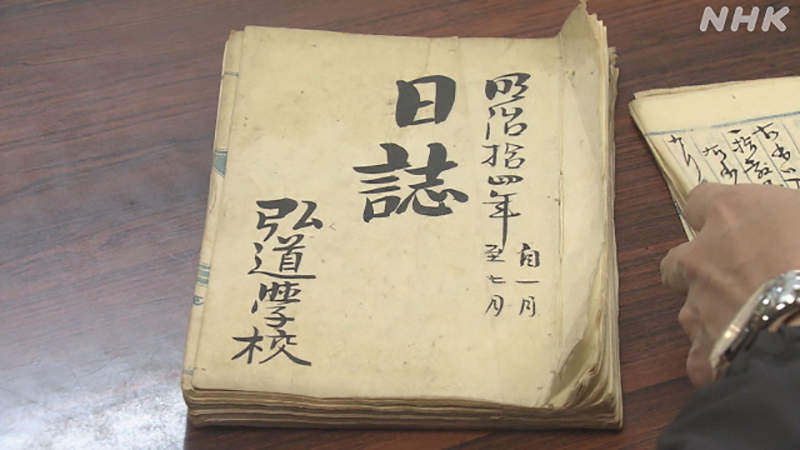 明治拾四年
自一月
至七月
日誌
弘道學校
NHK